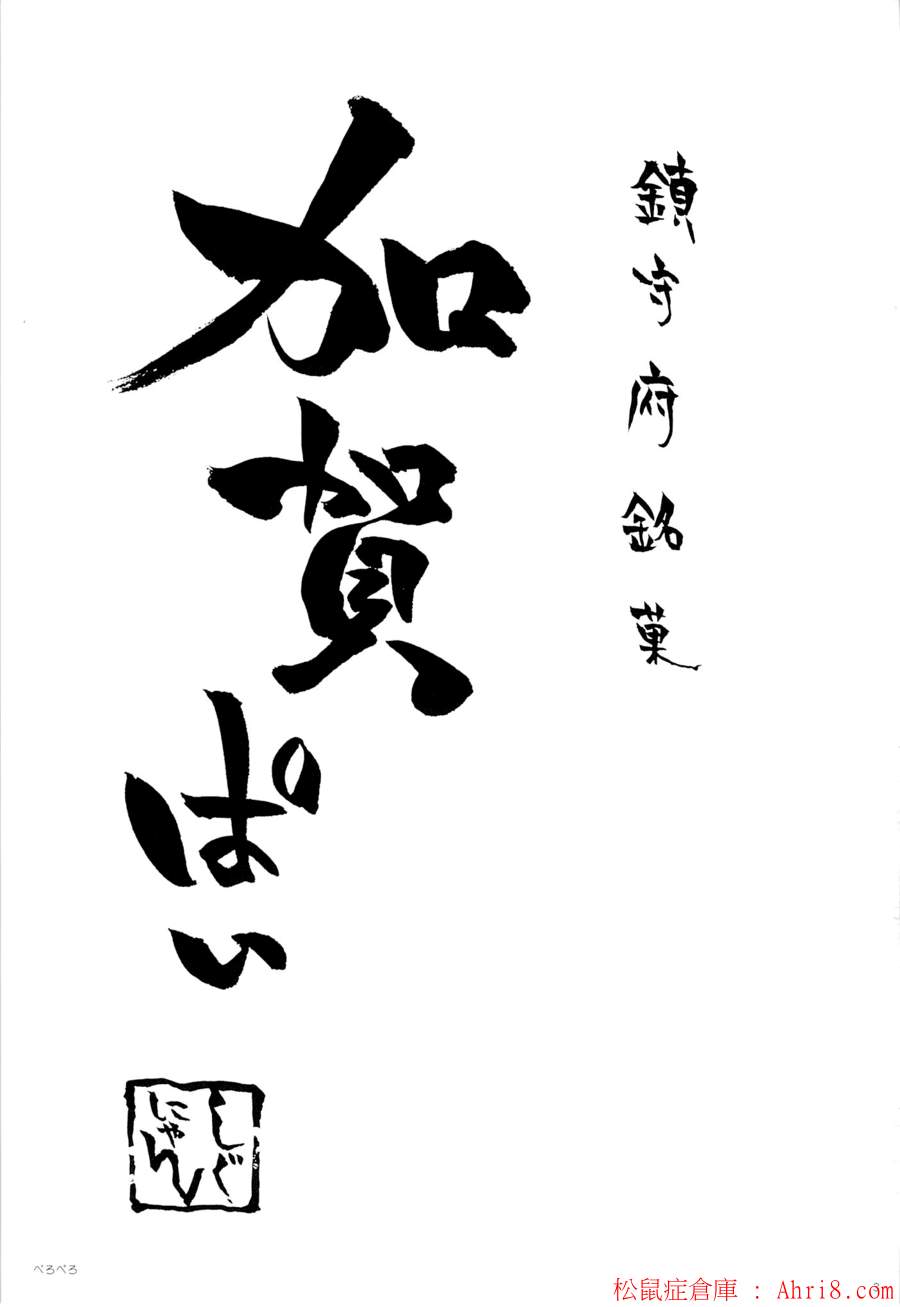 鎮守府銘菓
加賀ぱい
しぐ
にゃん
ぺろぺろ
松鼠症倉庫 : Ahri8.com